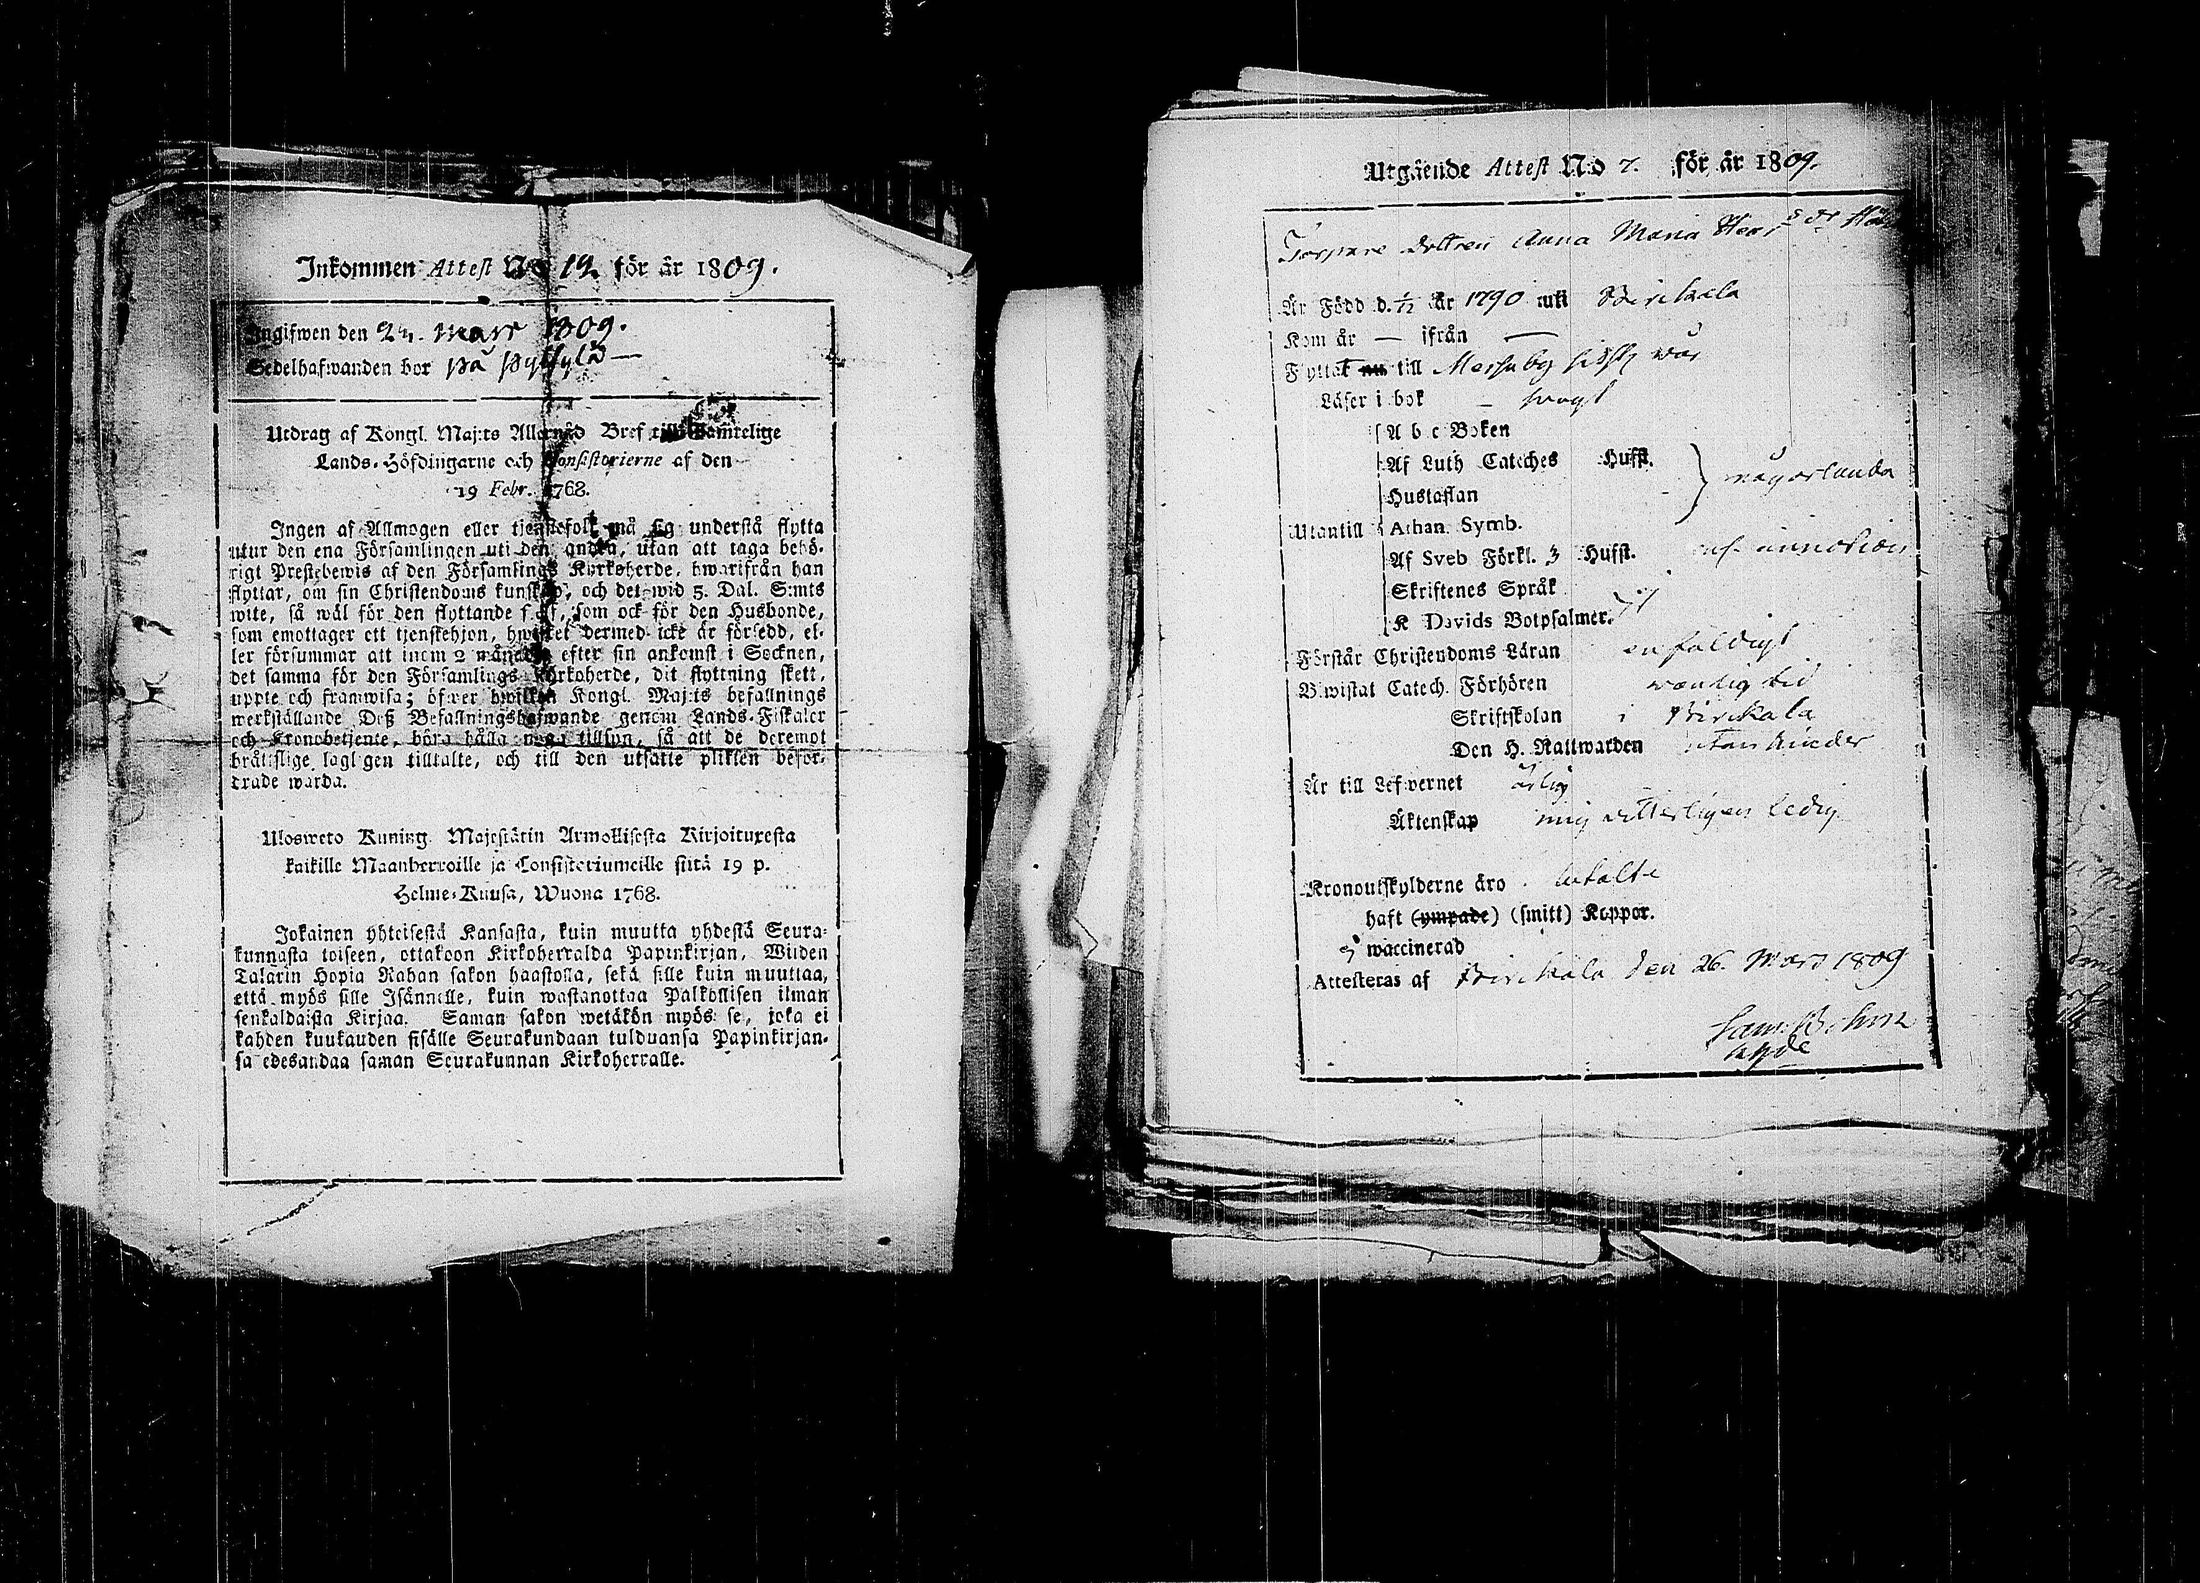 Inkommen Attest No 19. för år 1809.
Ingifwen den 29. Mars 1809.
Sedelhafwanden bor på Pyhyllä —
Utdrag af Kongl. Maj:ts Allernåd Bref till samtelige
Lands-Höfdingarne och Consistorierne af den
19 Febr. 1768.
Ingen af Allmogen eller tjenstefolk må sig understå flytta
utur den ena Församlingen uti den andra, utan att taga behö-
rigt Prestebewis af den Församlings Kyrkoherde, hwarifrån han
flyttar, om sin Christendoms kunskap, och det wid 5. Dal. S:mts
wite, så wäl för den flyttande self, som ock för den Husbonde,
som emottager ett tjenstehjon, hwilket dermed icke är försedd, el-
ler försummar att inom 2 månader efter sin ankomst i Socknen,
det samma för den Församlings Kyrkoherde, dit flyttning skett,
uppte och framwisa; öfwer hwilken Kongl. Maj:ts befallnings
werkställande Deß Befallningshafwande genom Lands-Fiskaler
och Kronobetjente, böra hålla noga tillsyn, så att de deremot
bråttslige lagligen tilltalte, och till den utsatte plikten befor-
drade warda.
Ulosweto Kuning. Majestätin Armollisesta Kirjoituxesta
kaikille Maanherroille ja Consistoriumeille siitä 19 p.
Helme-Kuusa, Wuona 1768.
Jokainen yhteisestä Kansasta, kuin muutta yhdestä Seura-
kunnasta toiseen, ottakoon Kirkoherralda Papinkirjan, Wiiden
Talarin Hopia Rahan sakon haastolla, sekä sille kuin muuttaa,
että myös sille Isännälle, kuin wastanottaa Palkollisen ilman
senkaldaista Kirjaa. Saman sakon wetäkön myös se, joka ei
kahden kuukauden sisälle Seurakundaan tulduansa Papinkirjan-
sa edesandaa saman Seurakunnan Kirkoherralle.
Utgående Attest No 7. för år 1809.
Torpare dottren Anna Maria
Är Född d. 1/12 år 1790 uti Birckala
Kom år — ifrån —
Flyttat nu till Messuby wår
Läser i bok — swagt
A b c Boken
Af Luth Cateches Hufst.
någorlunda
Hustaflan
Utantill Athan. Symb.
Af Sveb Förkl. 3 Hufst.
Skriftenes Språk
K Davids Botpsalmer.
Förstår Christendoms Läran enfaldigt
Biwistat Catech. Förhören wanlig tid
Skriftskolan i Birckala
Den H. Nattwarden utan hinder
Är till Lefwernet ärlig
Äktenskap mig witterligen ledig
Kronoutskylderne äro betalte
haft (ympade) (smitt) Koppor.
ej waccinerad
Attesteras af Birckala den 26. Mars 1809
Sam: